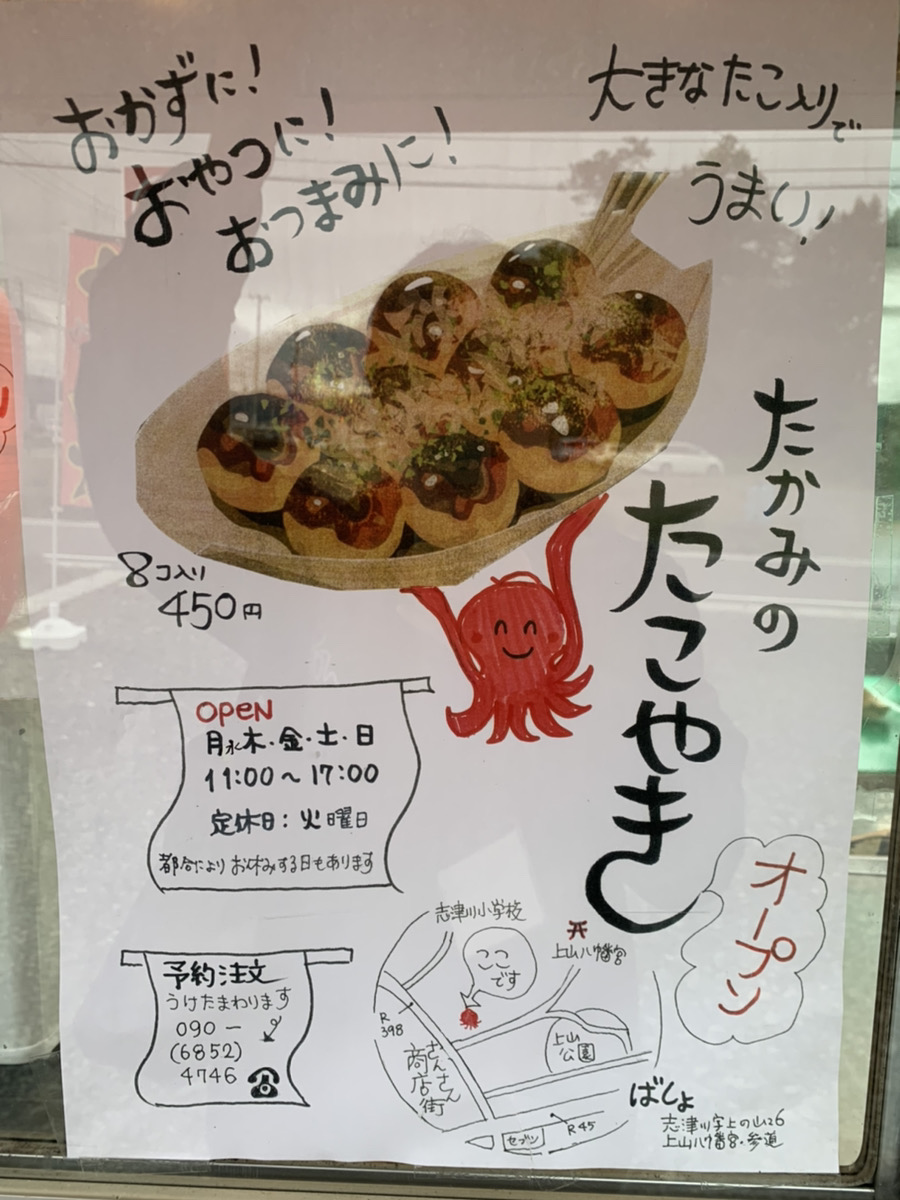 おかずに!
おやつに!
おつまみに!
大きなたこ入りで
うまい!
たかみの
たこやき
8コ入り
450円
OPEN
月水木・金・土・日
11:00〜17:00
定休日:火曜日
都合により お休みする日もあります
オープン
予約注文
うけたまわります
090-
(6852)
4746
志津川小学校
ここです
上山八幡宮
R398
さんさん商店街
上山公園
セブン
R45
ばしょ
志津川字上の山26
上山八幡宮・参道